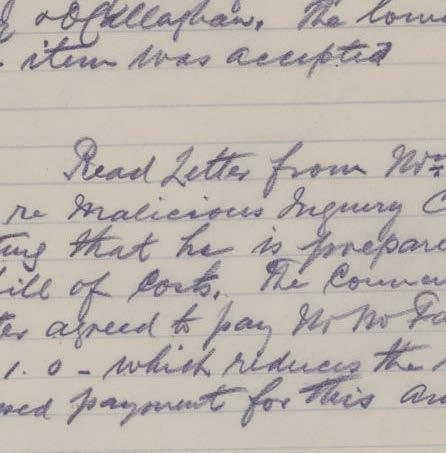 & O'Callaghan. The lowe
item was accepted
Read Letter from Mr
re Malicious Inquery C
ting that he is prepare
ill of Costs. The Counc
ter agreed to pay Mr
1. 0 - which reduces the
payment for this am